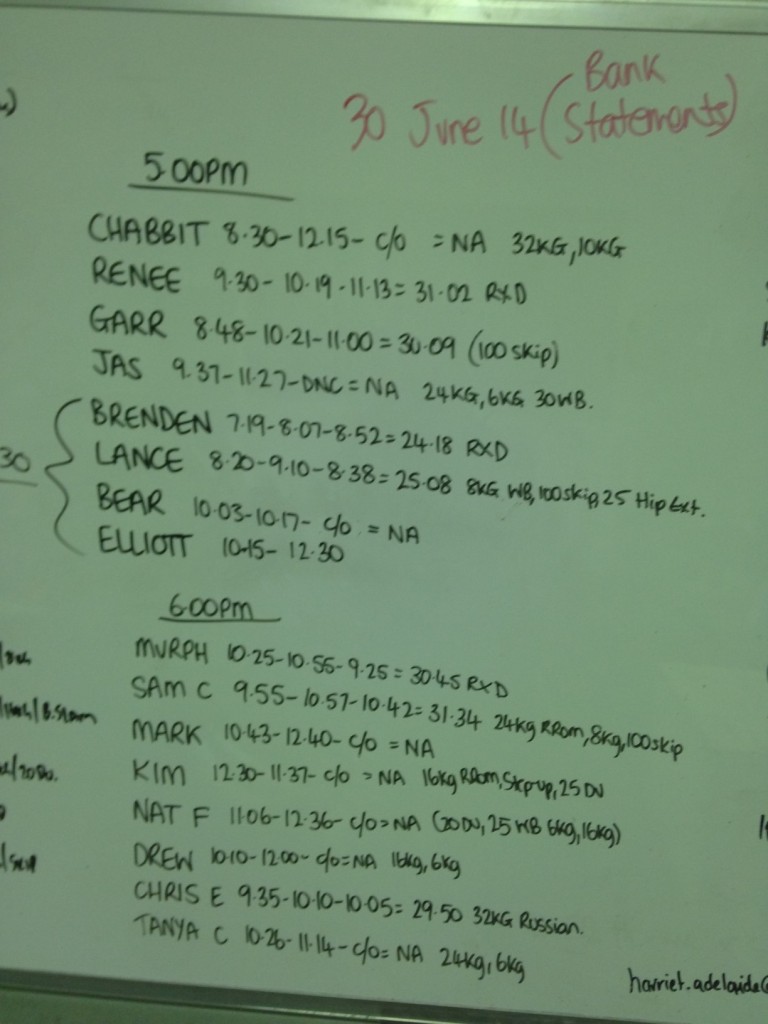 30 June 14 (Bank
Statements)
5.00PM
CHABBIT 8.30-12.15- c/o = NA 32KG, 10KG
RENEE 9.30- 10.19 - 11.13= 31.02 RXD
GARR 8.48-10.21-11.00 = 30.09 (100 skip)
JAS 9.37-11.27-DNC = NA 24KG, 6KG 30WB.
BRENDEN 7.19-8.07-8.52= 24.18 RXD
30
LANCE 8.20-9.10-8.38= 25.08 8KG WB, 100skip, 25 Hip Ext.
BEAR 10.03-10.17- c/o = NA
ELLIOTT 10.15- 12.30
6.00pm
MURPH 10.25-10.55-9.25= 30.45 RXD
SAM C 9.55-10.57-10.42= 31.34 24kg RRom, 8kg, 100skip
MARK 10.43-12.40- c/o = NA
KIM 12.30-11.37- c/o = NA 16kg RRom, Stepup, 25 DU
NAT F 11.06-12.36- c/o= NA (20DU, 25 WB 6kg, 16kg)
DREW 10.10-12.00- c/o= NA 16kg, 6kg
CHRIS E 9.35-10.10-10.05= 29.50 32KG Russian.
TANYA C 10.26-11.14- c/o= NA 24kg, 6kg
harriet.adelaide@